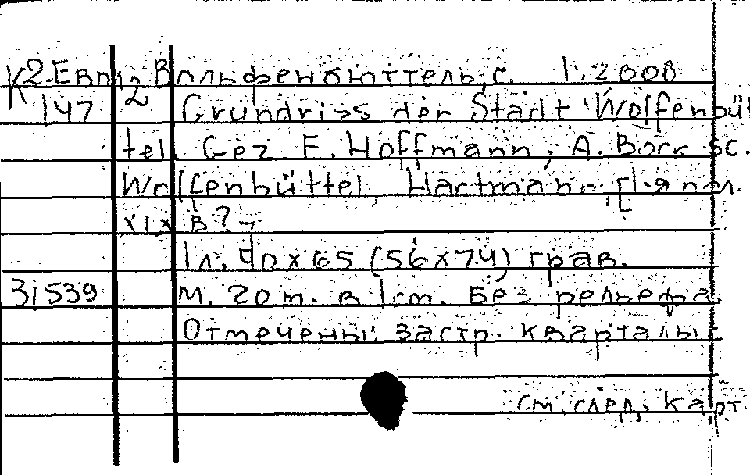 К2-Евп 12 Вольфенбюттель, с. 1:2000
147 2 Grundriss der Stadt Wolfenbüt
tel. Gez. F. Hoffmann, A. Bock sc.
Wolfenbüttel, Hartmann. [1-я пол.
XIX в?-
1 л. 40x65 (56x74) грав.
31539 М. 20 m. в 1 cm. Без рельефа.
Отмечены застр. кварталы.
См. след. карт.